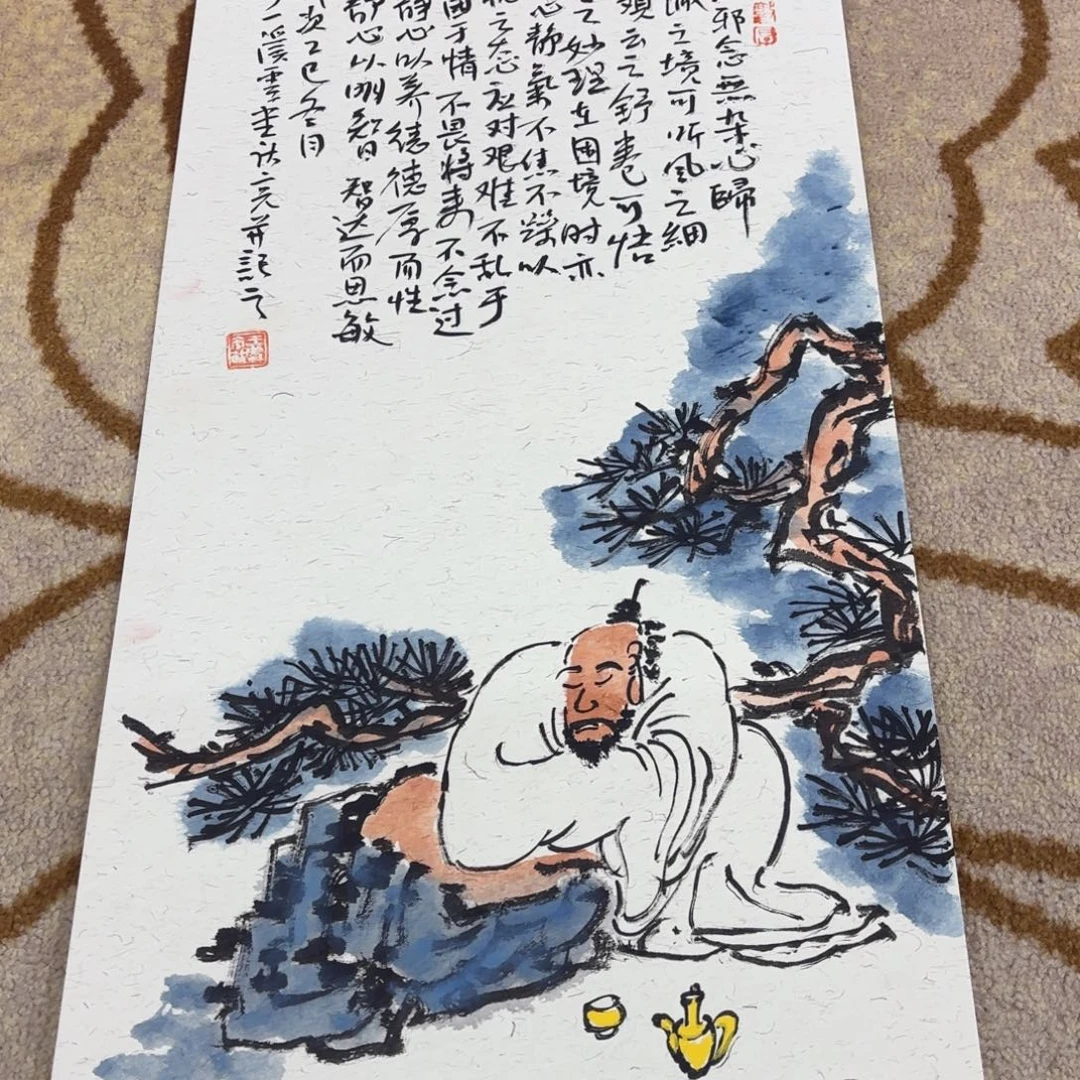 邪念無杂心歸
之境可听风之細
云之舒卷可悟
之妙理在困境时亦
心静氣不焦不躁以
之态应对艰难不乱于
困于情不畏将来不念过
静心以养德德厚而性
静心以明智智达而思敏
次乙巳冬月
一溪雲堂达亮并記之